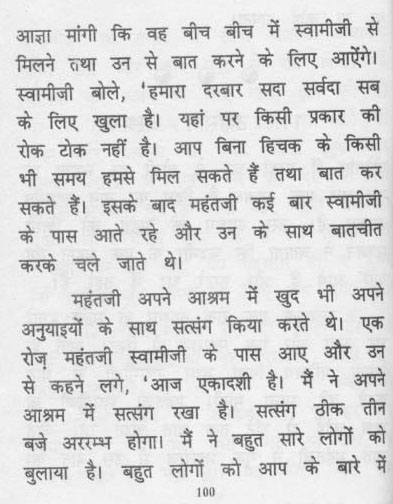 आज्ञा मांगी कि वह बीच बीच में स्वामीजी से
मिलने तथा उन से बात करने के लिए आऐंगे।
स्वामीजी बोले, 'हमारा दरबार सदा सर्वदा सब
के लिए खुला है। यहां पर किसी प्रकार की
रोक टोक नहीं है। आप बिना हिचक के किसी
भी समय हमसे मिल सकते हैं तथा बात कर
सकते हैं। इसके बाद महंतजी कई बार स्वामीजी
के पास आते रहे और उन के साथ बातचीत
करके चले जाते थे।
महंतजी अपने आश्रम में खुद भी अपने
अनुयाइयों के साथ सत्संग किया करते थे। एक
रोज़ महंतजी स्वामीजी के पास आए और उन
से कहने लगे, 'आज एकादशी है। मैं ने अपने
आश्रम में सत्संग रखा है। सत्संग ठीक तीन
बजे अररम्भ होगा। मैं ने बहुत सारे लोगों को
बुलाया है। बहुत लोगों को आप के बारे में
100